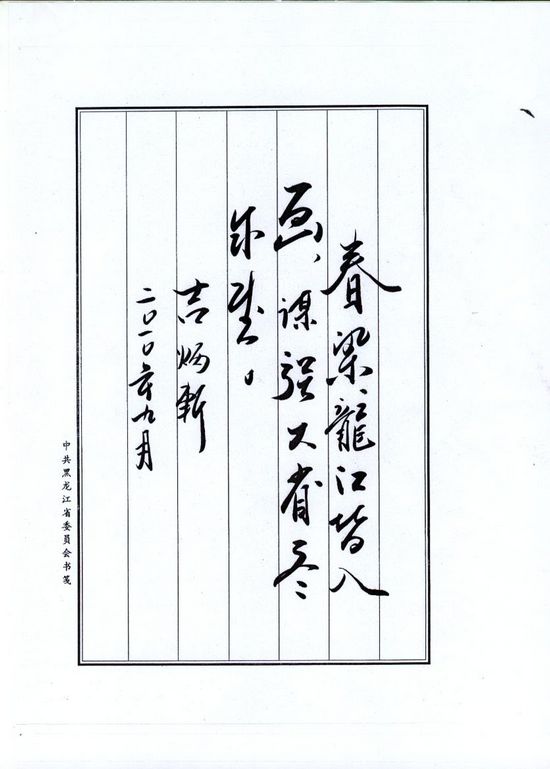 春染龍江皆入
画、谋强大省
吉炳轩
二〇一〇年九月
中共黑龙江省委員会书笺